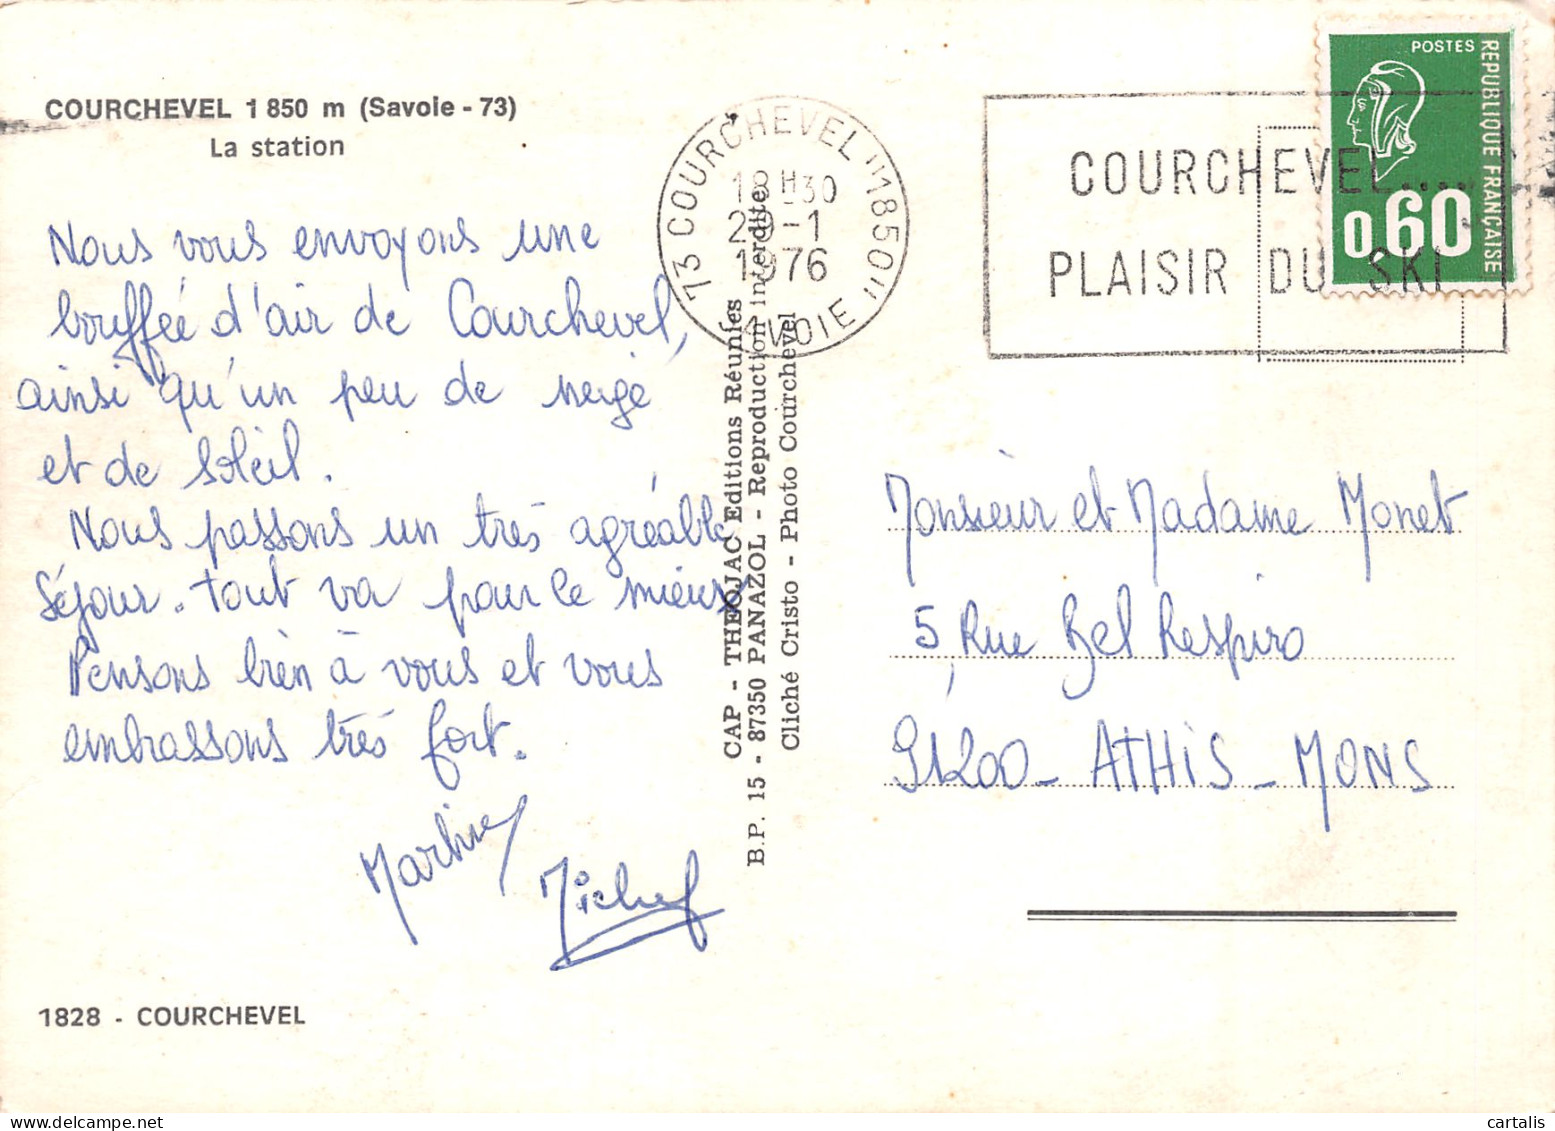 COURCHEVEL 1 850 m (Savoie - 73)
La station
Nous vous envoyons une
bouffée d'air de Courchevel,
ainsi qu'un peu de neige
et de soleil.
Nous passons un très agréable
séjour. tout va pour le mieux
Pensons bien à vous et vous
embrassons très fort.
Martine
Michel
1828 - COURCHEVEL
CAP - THEOJAC Editions Réunies
B.P. 15 - 87350 PANAZOL - Reproduction interdite
Cliché Cristo - Photo Courchevel
73 COURCHEVEL "1850"
18H30
29-1
1976
SAVOIE
COURCHEVEL....
PLAISIR DU SKI
POSTES
REPUBLIQUE FRANÇAISE
0,60
Monsieur et Madame Monet
5, Rue Bel Respiro
91200 - ATHIS - MONS
cartalis